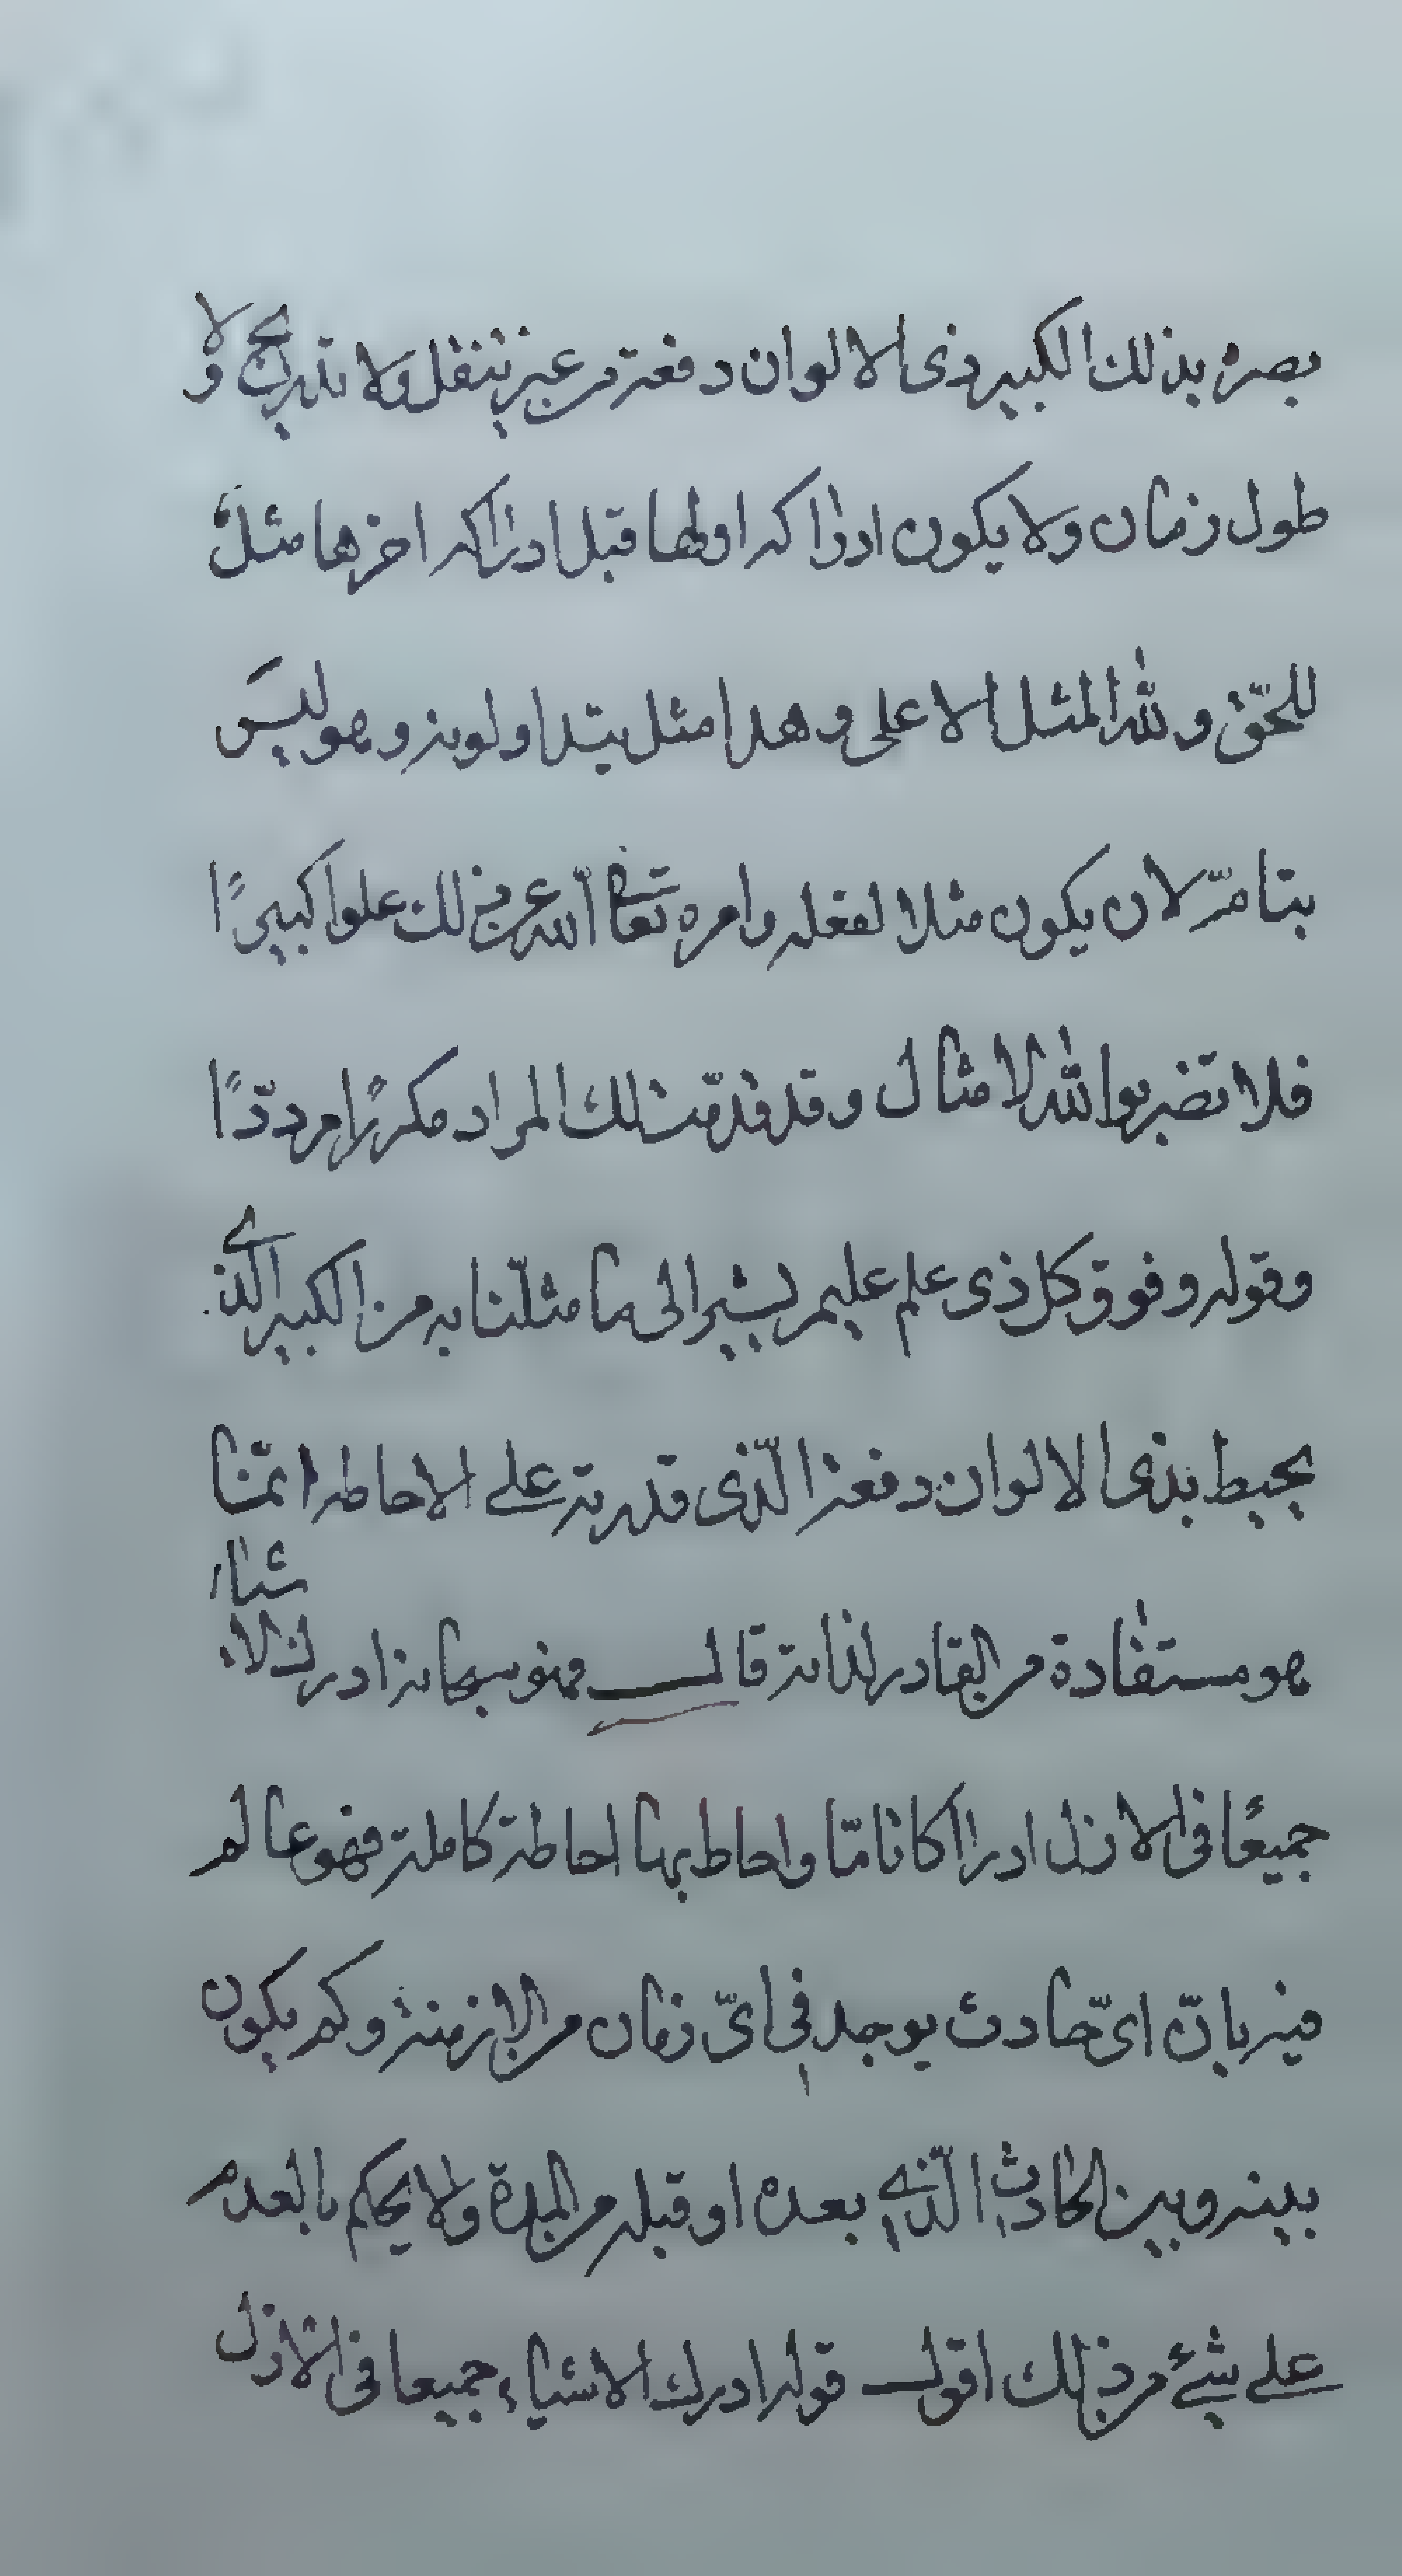 بصره بذلك الكبير ذى الالوان دفعة من غير تنقل ولا تدريج ولا
طول زمان ولا يكون ادراكه اولها قبل ادراكه اخرها مثل
للحق ولله المثل الاعلى وهذا مثل يتداولونه وهو ليس
بتامّ لان يكون مثلا لفعله وامره تعالى الله عن ذلك علوا كبيرًا
فلا تضربوا لله الامثال وقد قدّمت لك المراد مكررًا مردّدًا
وقوله وفوق كل ذى علم عليم يشير الى ما مثلّنا به من الكبير الذى
يحيط بذى الالوان دفعة الّذى قدرته على الاحاطه انمّا
هو مستفادة من القادر لذاته قال فهو سبحانه ادرك الاشياء
جميعًا فى الازل ادراكا تامّا واحاط بها احاطة كاملة فهو عالم
منه بانّ اىّ حادث يوجد فى اىّ زمان من الازمنة وكم يكون
بينه وبين الحادث الّذى بعده او قبله من المدة ولا يحكم بالعدم
على شئ من ذلك اقول قوله ادرك الاشياء جميعا فى الازل